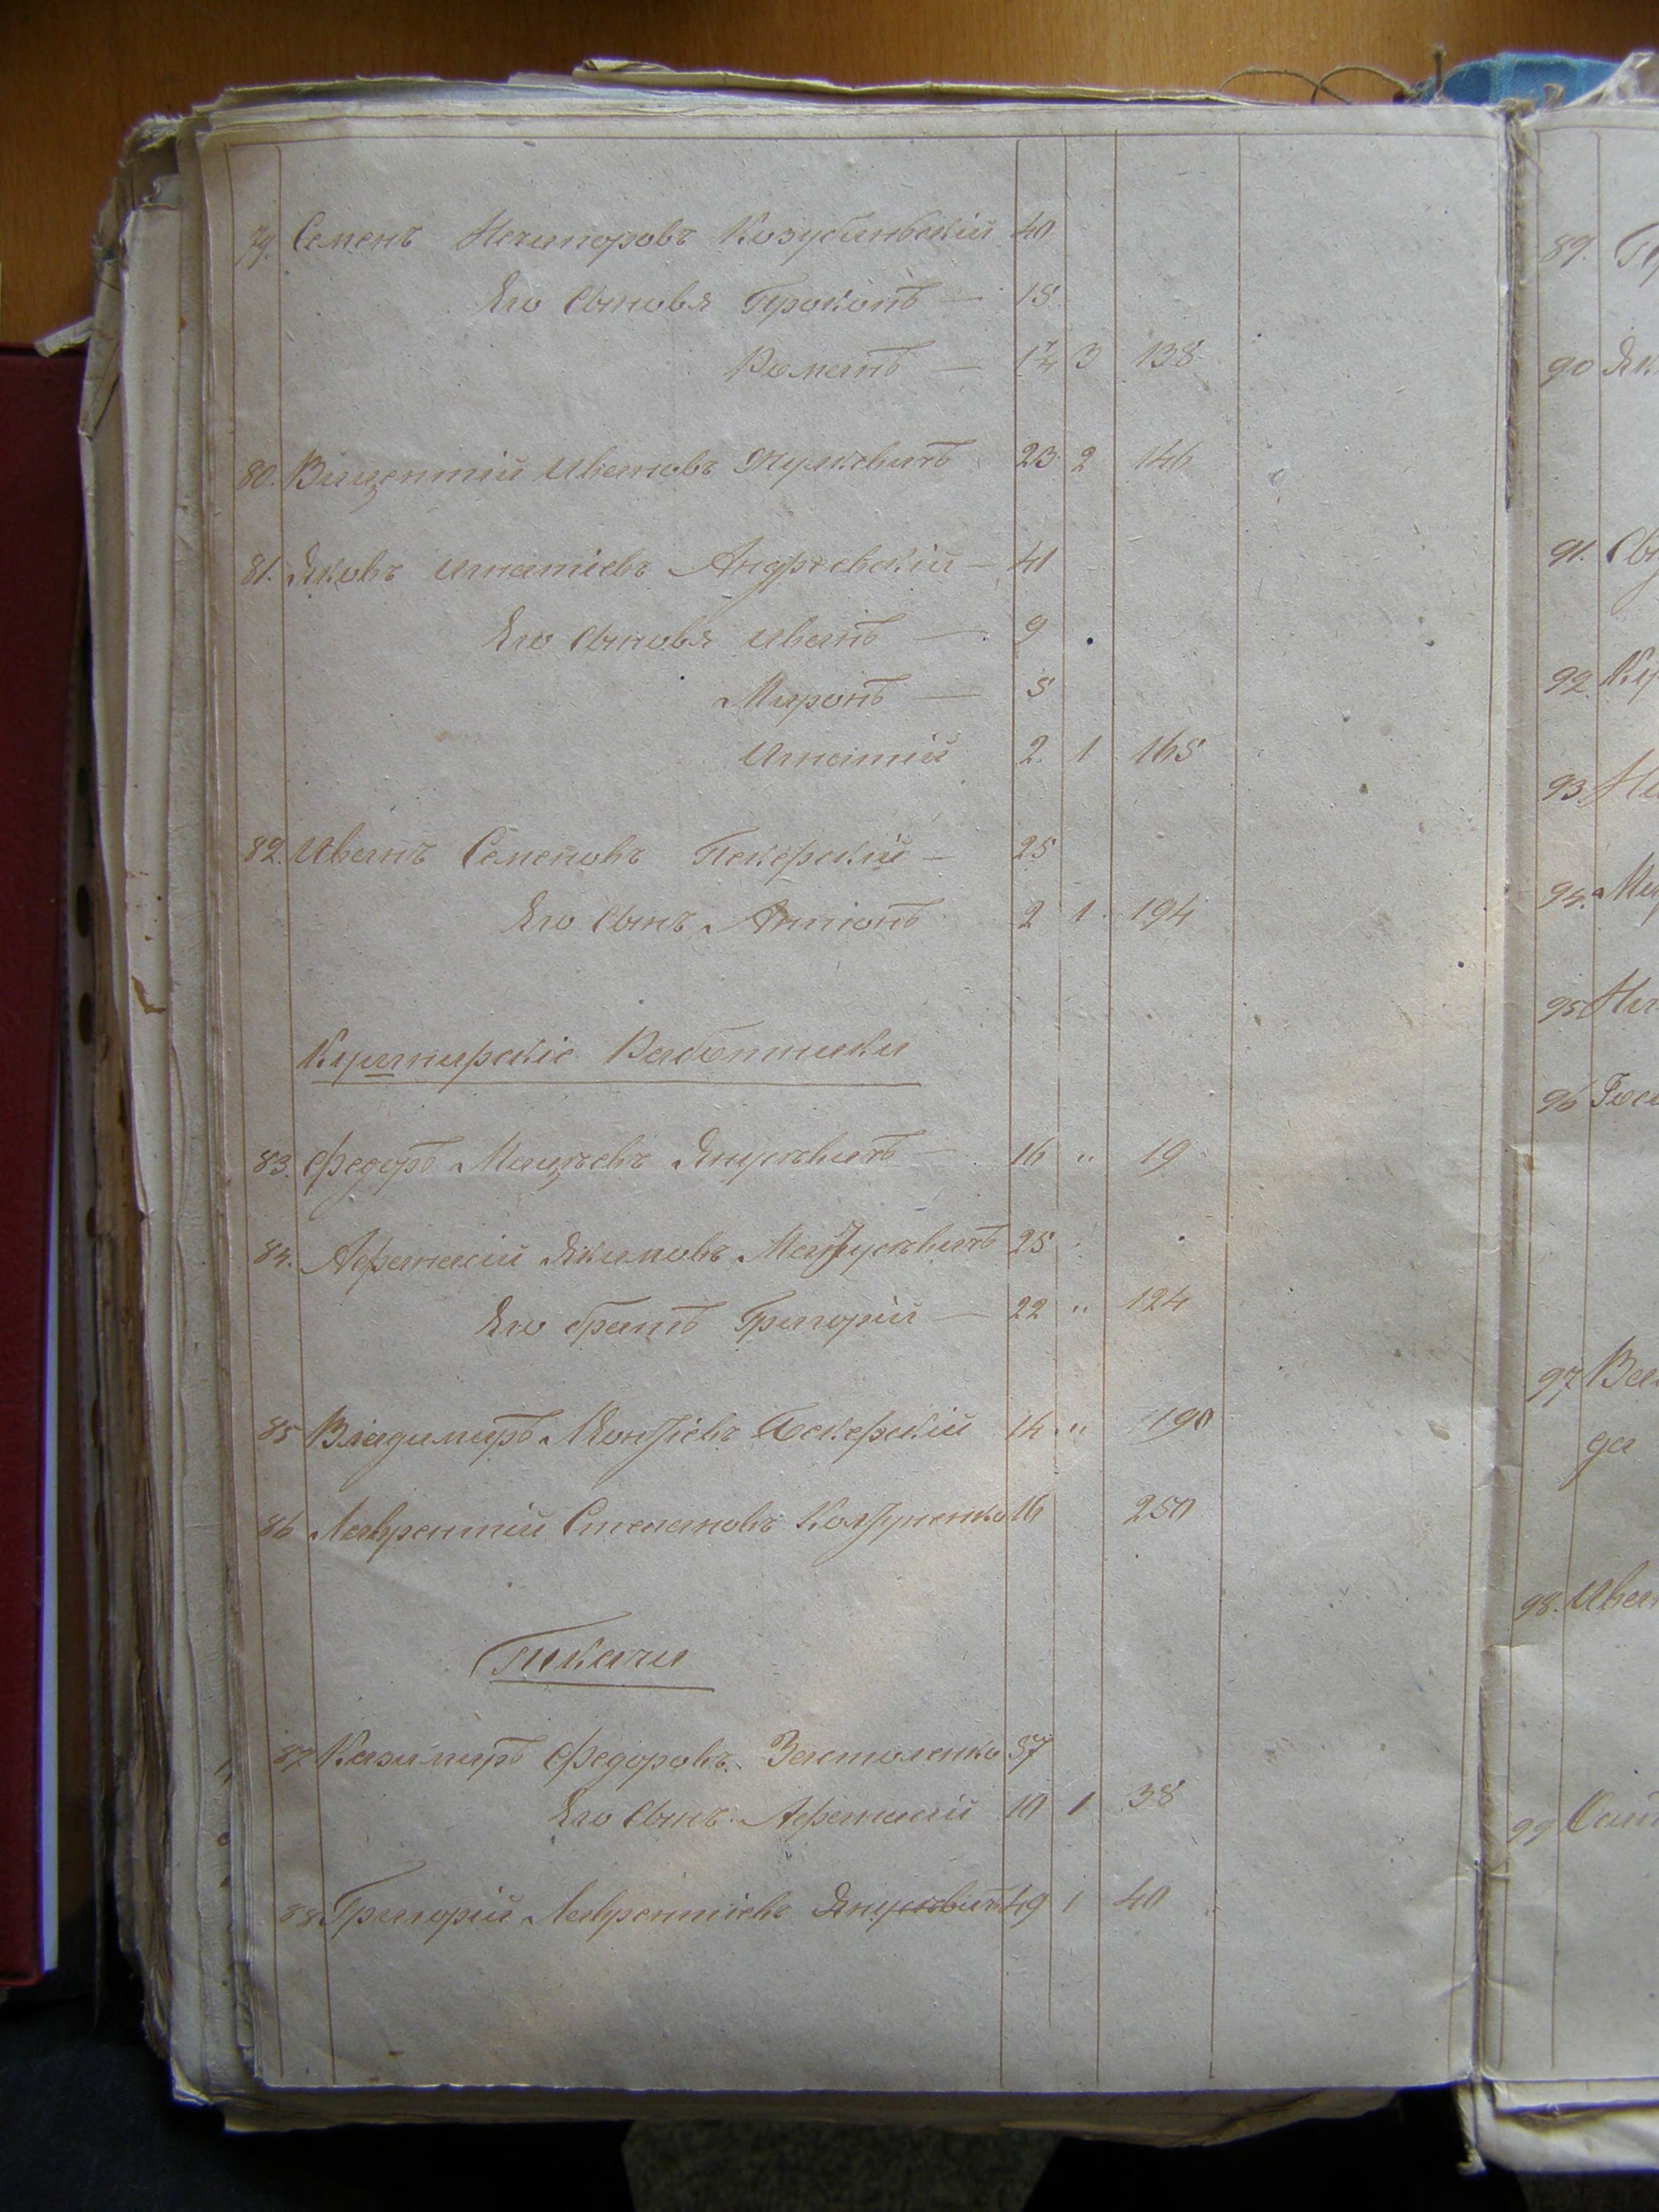 79. Семенъ Нечипоровъ Козубинскій 40
Его Сыновья Прокопъ — 18
Романъ — 14 3 138
80. Викентій Ивановъ Жулкевичъ 23 2 146
81. Яковъ Игнатіевъ Андреевскій — 41
Его Сыновья Иванъ — 9
Миронъ — 5
Игнатій 2 1 165
82. Иванъ Семеновъ Пекерскій — 25
Его Сынъ Антонъ 2 1 194
Работники
83. Федоръ Мацѣевъ Янцевичъ — 16 " 19
84. Афанасій Якимовъ 25
Его братъ Григорій — 22 " 124
85 Владимиръ Пекерскій 14 " 190
86 Лаврентій Степановъ 16 250
Ткачи
87 Казимиръ Федоровъ Застоленко 37
Его Сынъ Афанасій 10 1 38
88 Григорій Лаврентіевъ Янцевичъ 49 1 40
89.
90
91.
92.
93.
94.
95
96
97
98. Иван
99